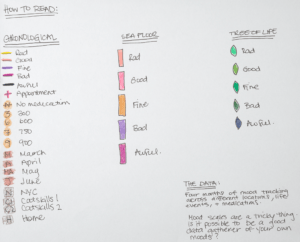 HOW TO READ:
CHRONOLOGICAL
Rad
Good
Fine
Bad
Awful
Appointment
No medication
300
600
750
900
March
April
May
June
NYC
Catskills 1
Catskills 2
Home
SEA FLOOR
Rad
Good
Fine
Bad
Awful
TREE OF LIFE
Rad
Good
Fine
Bad
Awful
THE DATA:
Four months of mood tracking
across different locations, life
events, + medications
Mood scales are a tricky thing
is it possible to be a good
data gatherer of your own
moods?